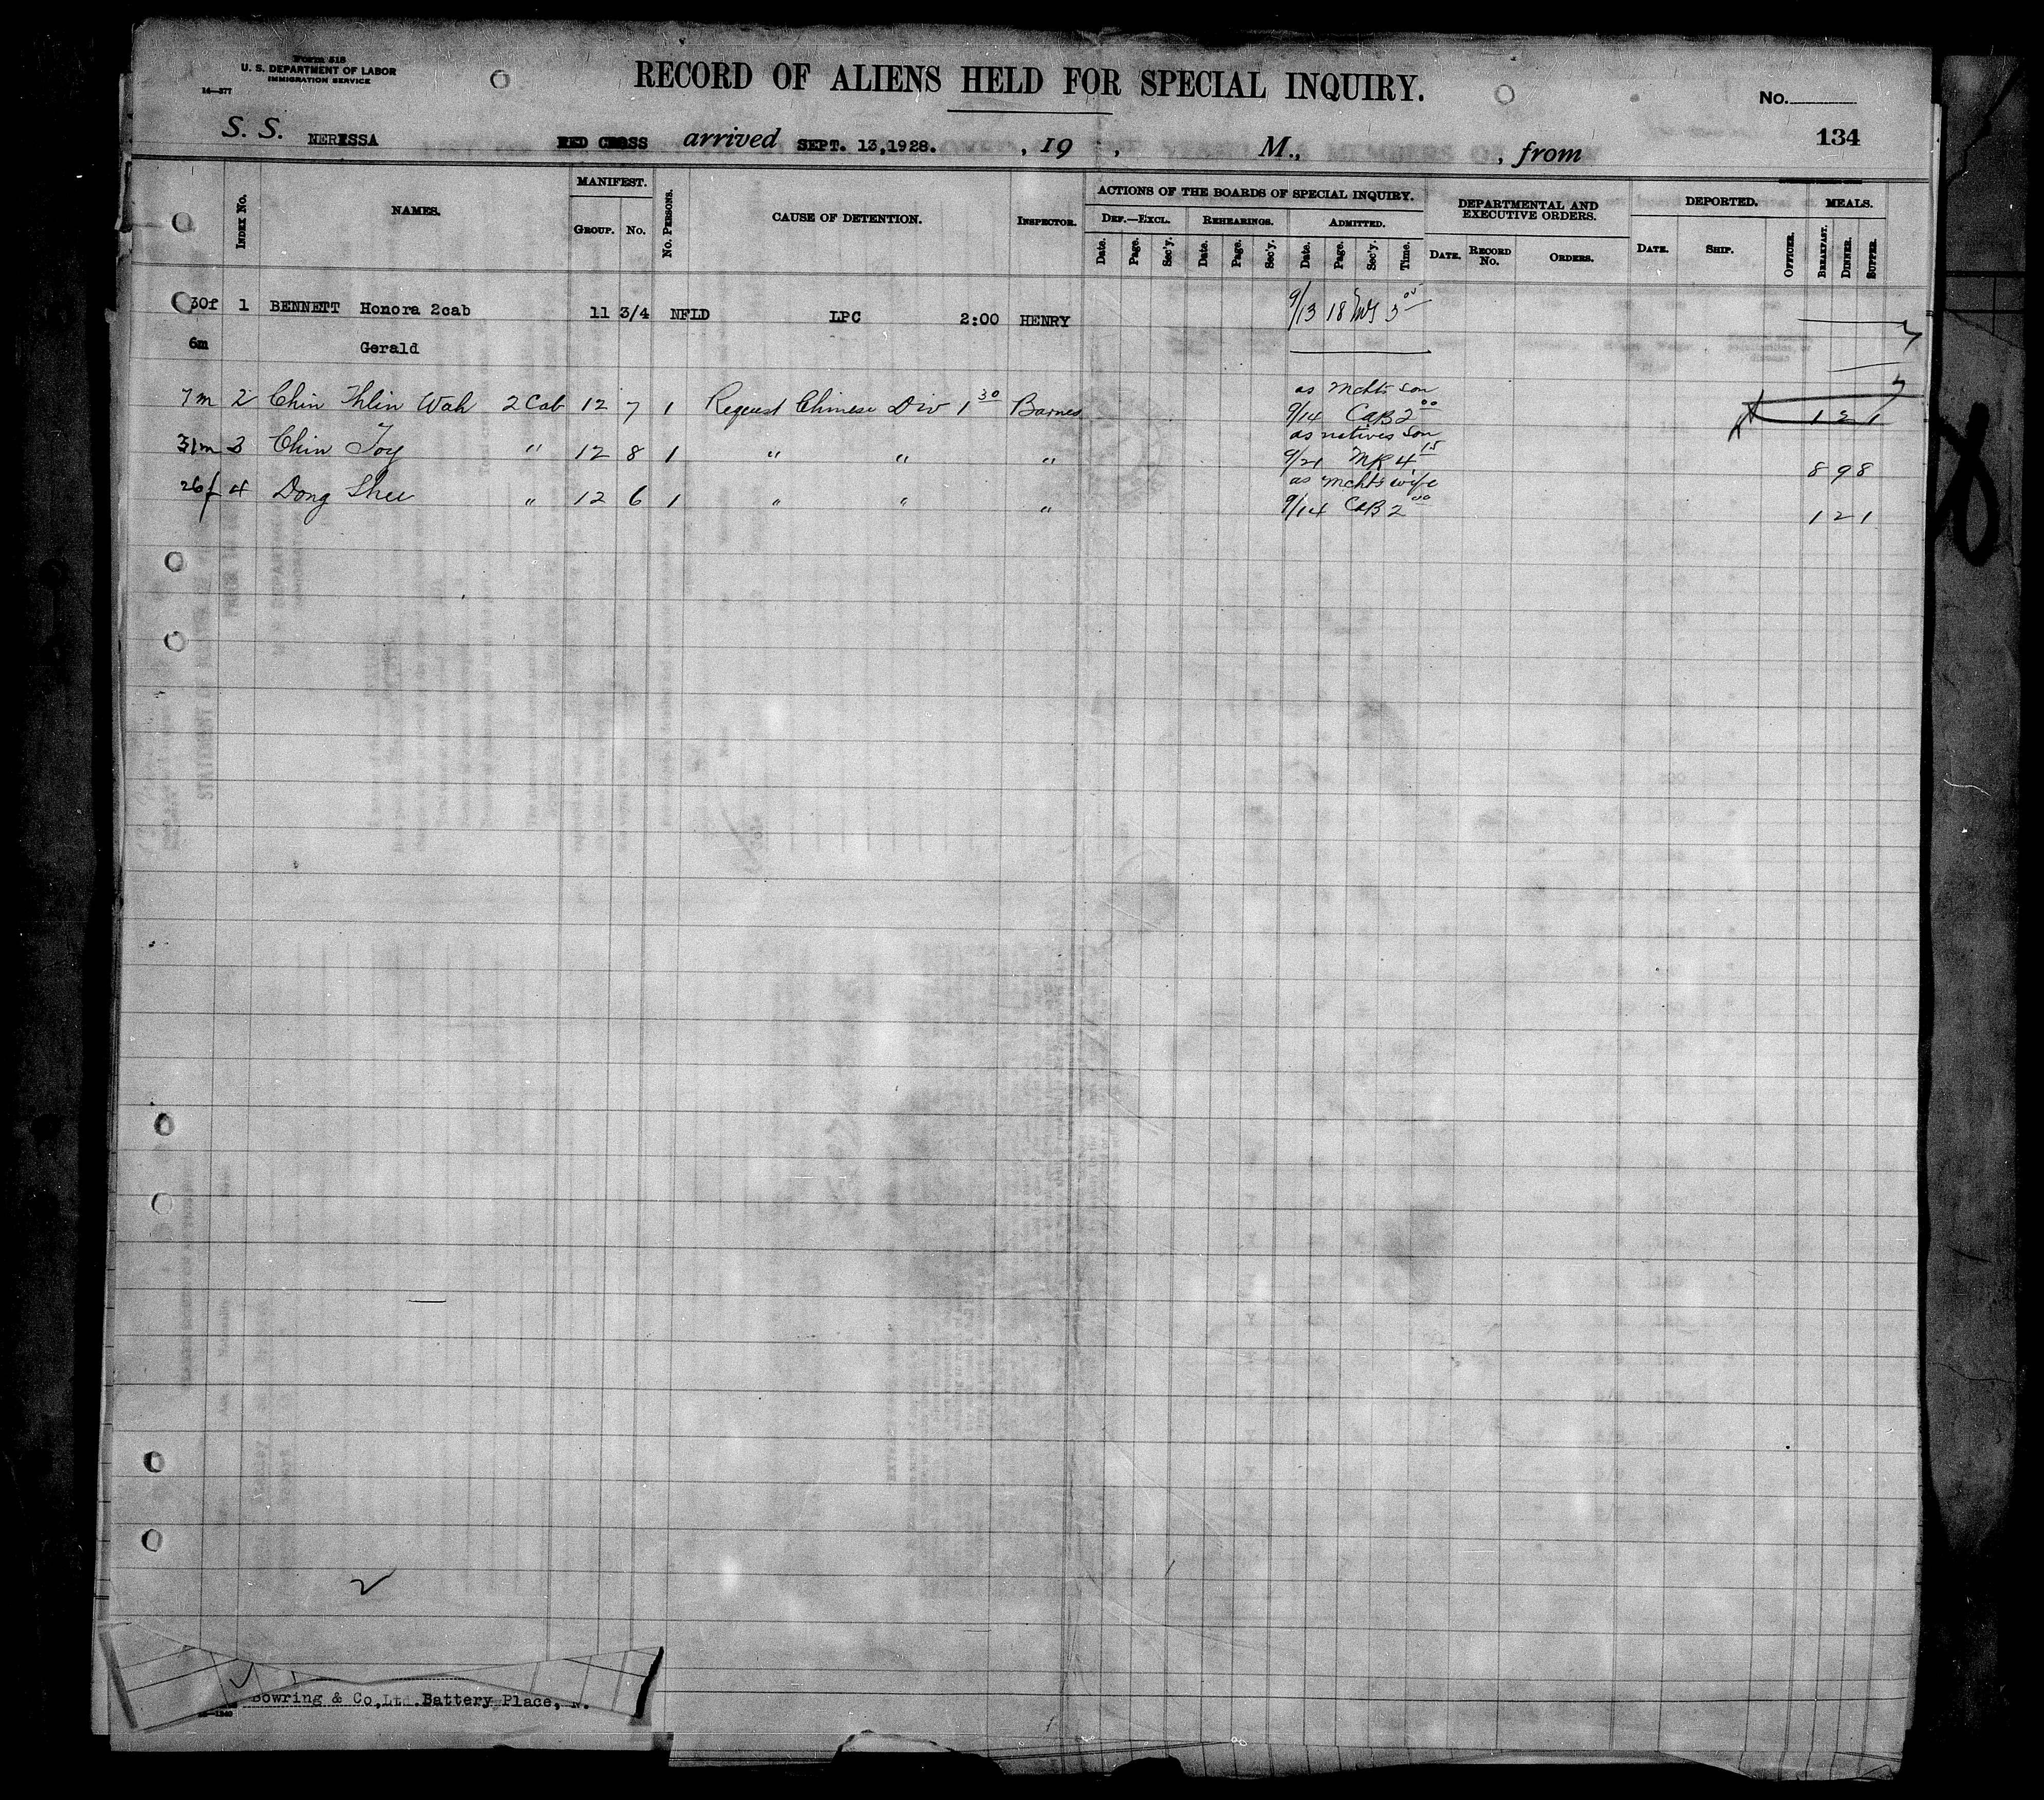 Form 518
U. S. DEPARTMENT OF LABOR
IMMIGRATION SERVICE
14—377
RECORD OF ALIENS HELD FOR SPECIAL INQUIRY.
No.
134
S. S. NERESSA RED CROSS arrived SEPT. 13,1928. , 19 , M., , from
INDEX No. NAMES. MANIFEST. GROUP. No. No. PERSONS. CAUSE OF DETENTION. INSPECTOR. ACTIONS OF THE BOARDS OF SPECIAL INQUIRY. DEF.—EXCL. Date. Page. Sec'y. REHEARINGS. Date. Page. Sec'y. ADMITTED. Date. Page. Sec'y. Time. DEPARTMENTAL AND EXECUTIVE ORDERS. DATE. RECORD No. ORDERS. DEPORTED. DATE. SHIP. OFFICER. MEALS. BREAKFAST. DINNER. SUPPER.
30f 1 BENNETT Honora 2cab 11 3/4 NFLD LPC 2:00 HENRY 9/13 18 3 00
6m Gerald
as mchts son
7m 2 Chin Thlin Wah 2 Cab 12 7 1 Request Chinese Div 1 30 Barnes 9/14 CAB 2 00 1 2 1
as natives son
31m 3 Chin Toy " 12 8 1 " " " 9/21 MR 4 15 8 9 8
as mchts wife
26f 4 Dong Shee " 12 6 1 " " " 9/14 CAB 2 00 1 2 1
Bowring & Co,Ltd.Battery Place, N.